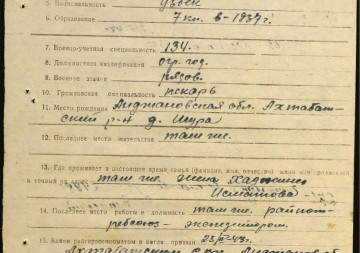 5. Национальность узбек
6. Образование 7 кл. в-1937 г.
7. Военно-учетная специальность 134.
8. Должностная квалификация огр. год.
9. Военное звание рядов.
10. Гражданская специальность пекарь
11. Место рождения Андижановская обл. Ахтабат-
ский р-н д. Шура
12. Последнее место жительства там же.
13. Где проживает в настоящее время семья (фамилия, имя, отчество)
и точный там же. жена
14. Последнее место работы и должность там же. райпот-
ребсоюз- экспедитором.
15. Каким райвоенкоматом и когда призван
Ахтабатским